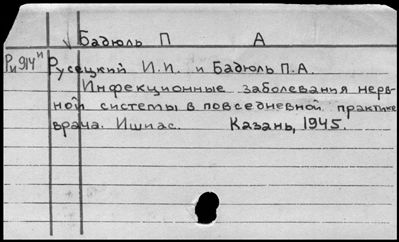 Бадюль П А
Ри914и Русецкий И.И. и Бадюль П.А.
Инфекционные заболевания нерв-
ной системы в повседневной практике
врача. Ишпас. Казань, 1945.